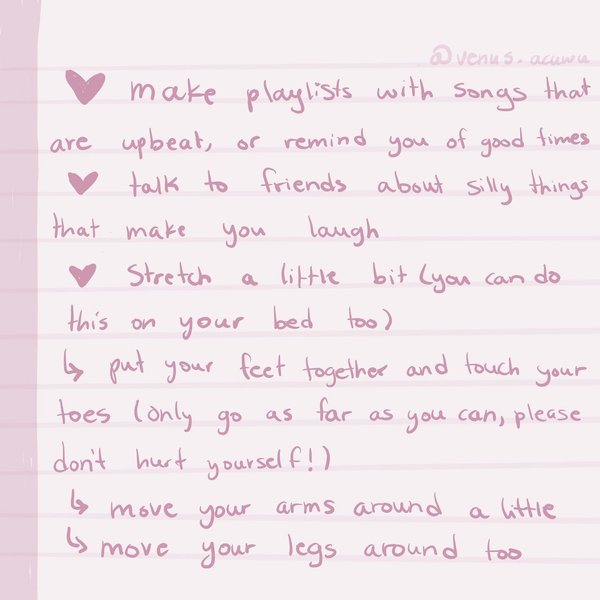 @venus.acuwu
♥ make playlists with songs that
are upbeat, or remind you of good times
♥ talk to friends about silly things
that make you laugh
♥ Stretch a little bit (you can do
this on your bed too)
↳ put your feet together and touch your
toes (only go as far as you can, please
don't hurt yourself!)
↳ move your arms around a little
↳ move your legs around too